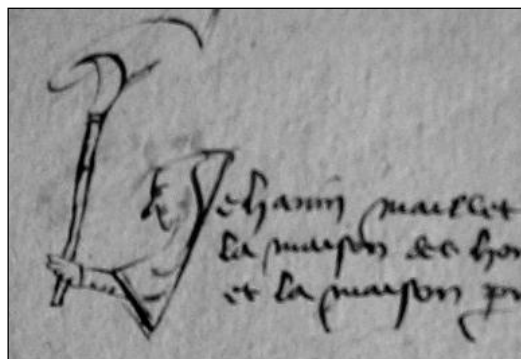 Jehanin maillet
la maison des hon
et la maison pr